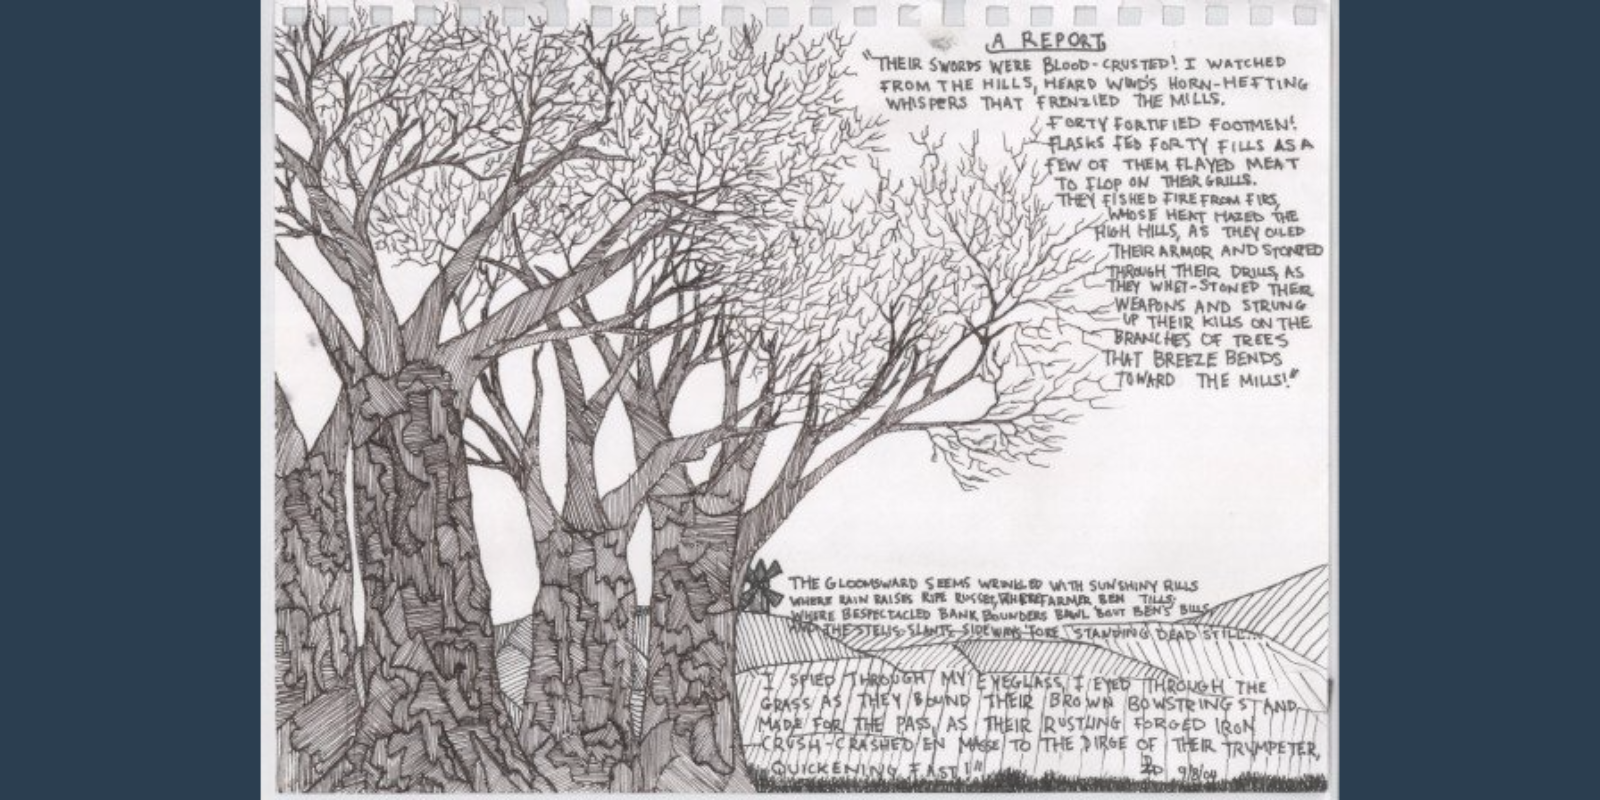 A REPORT
"THEIR SWORDS WERE BLOOD-CRUSTED! I WATCHED
FROM THE HILLS, HEARD WIND'S HORN-HEFTING
WHISPERS THAT FRENZIED THE MILLS.
FORTY FORTIFIED FOOTMEN!
FLASKS FED FORTY FILLS AS A
FEW OF THEM FLAYED MEAT
TO FLOP ON THEIR GRILLS.
THEY FISHED FIRE FROM FIRS,
WHOSE HEAT HAZED THE
HIGH HILLS, AS THEY OILED
THEIR ARMOR AND
THROUGH THEIR DRILLS, AS
THEY WHET-STONED THEIR
WEAPONS AND STRUNG
UP THEIR KILLS ON THE
BRANCHES OF TREES
THAT BREEZE BENDS
TOWARD THE MILLS!"
THE GLOOMSWARD SEEMS WRINKLED WITH SUNSHINY RILLS
WHERE RAIN RAISES RIPE RUSSET, WHERE FARMER BEN TILLS,
WHERE BESPECTACLED BANK BOUNDERS BAWL 'BOUT BEN'S BILLS,
AND THE SLANTS SIDEWAYS 'FORE STANDING DEAD STILL...
I SPIED THROUGH MY EYEGLASS, I EYED THROUGH THE
GRASS AS THEY BOUND THEIR BROWN BOWSTRINGS AND
MADE FOR THE PASS, AS THEIR RUSTLING FORGED IRON
CRUSH-CRASHED EN MASSE TO THE DIRGE OF THEIR TRUMPETER,
QUICKENING FAST!"
9/8/04